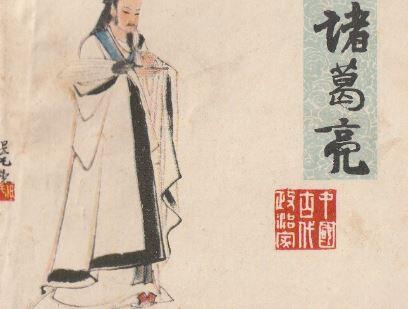 诸葛亮
中國
古代
政治家